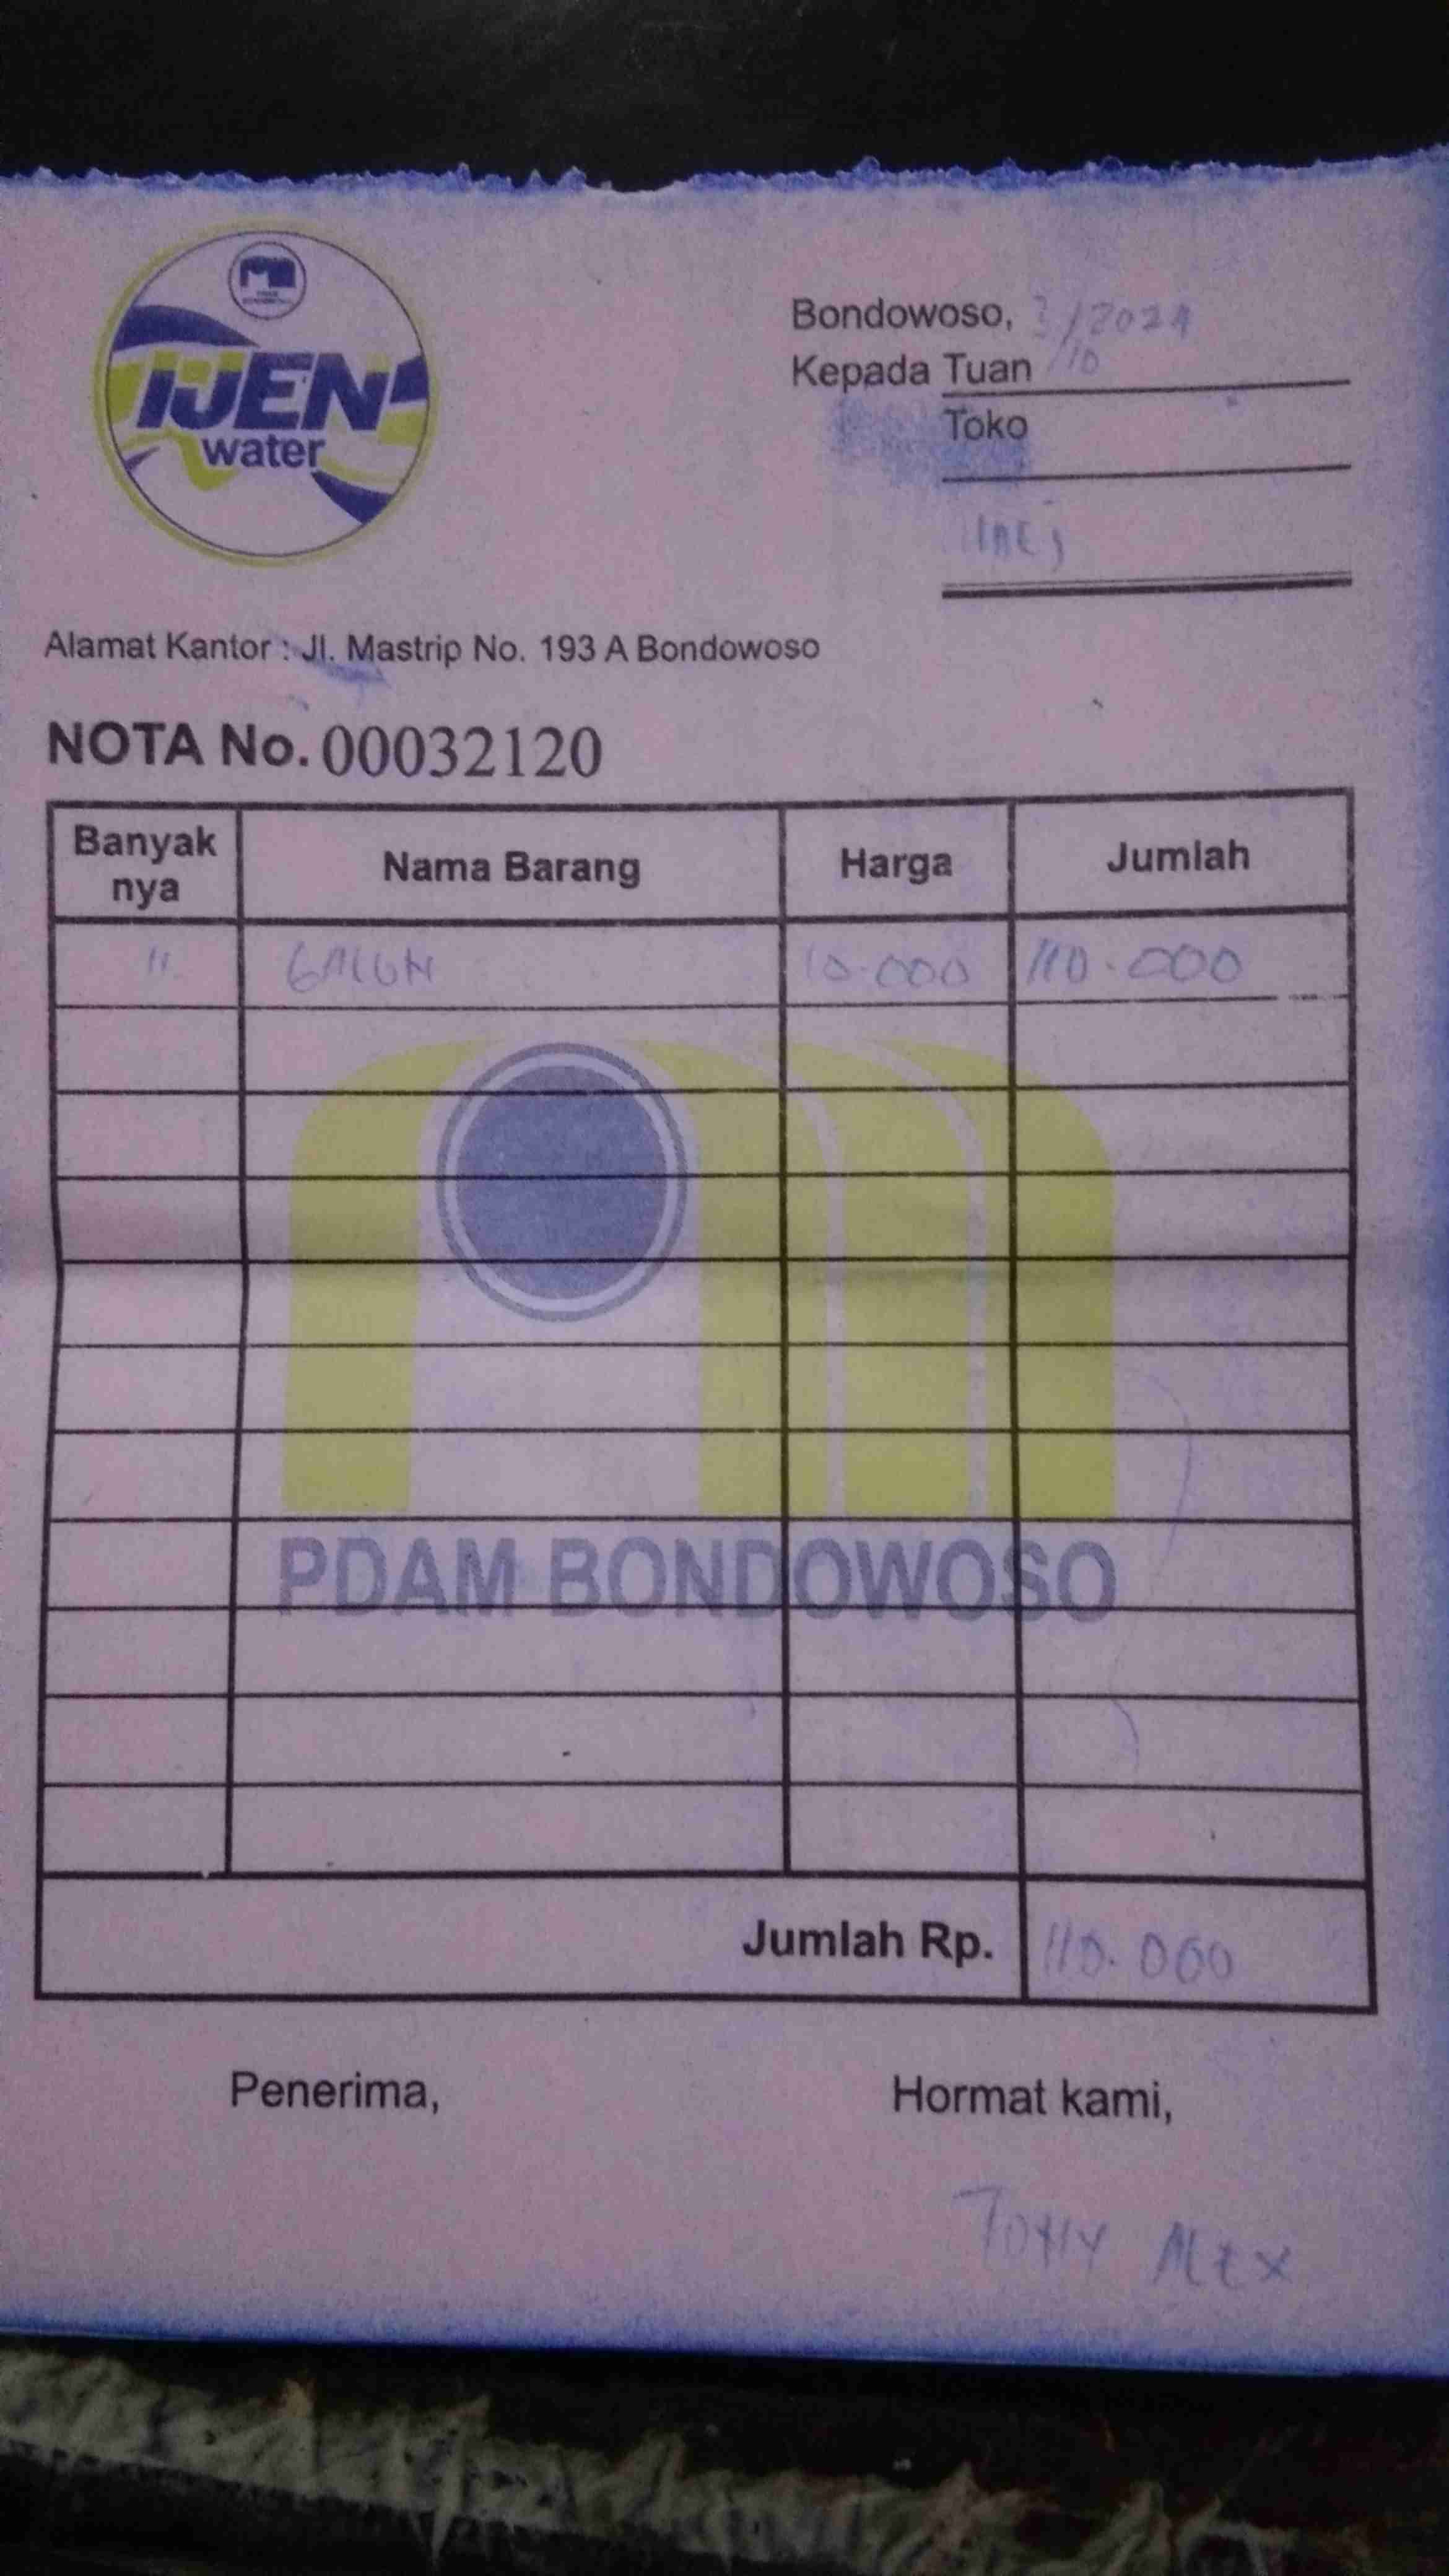 IJEN
water
Bondowoso, 3/10/2024
Kepada Tuan
Toko
Alamat Kantor : Jl. Mastrip No. 193 A Bondowoso
NOTA No. 00032120
Banyak nya Nama Barang Harga Jumlah
11 GALON 10.000 110.000
PDAM BONDOWOSO
Jumlah Rp. 110.000
Penerima, Hormat kami,